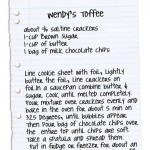 Wendy's Toffee
about 46 saltine crackers
1 cup Brown Sugar
1 cup of butter
1 bag of milk chocolate chips
Line cookie sheet with foil, Lightly
butter the foil, Line crackers on
foil. In a saucepan combine butter &
sugar, Cook until melted completely.
Pour mixture over crackers evenly and
bake in the oven for about 5 min on
325 degrees, until bubbles appear.
Then pour bag of chocolate chips over
the entire top until chips are soft.
Take a spatula and spread them.
Put in the freezer for about